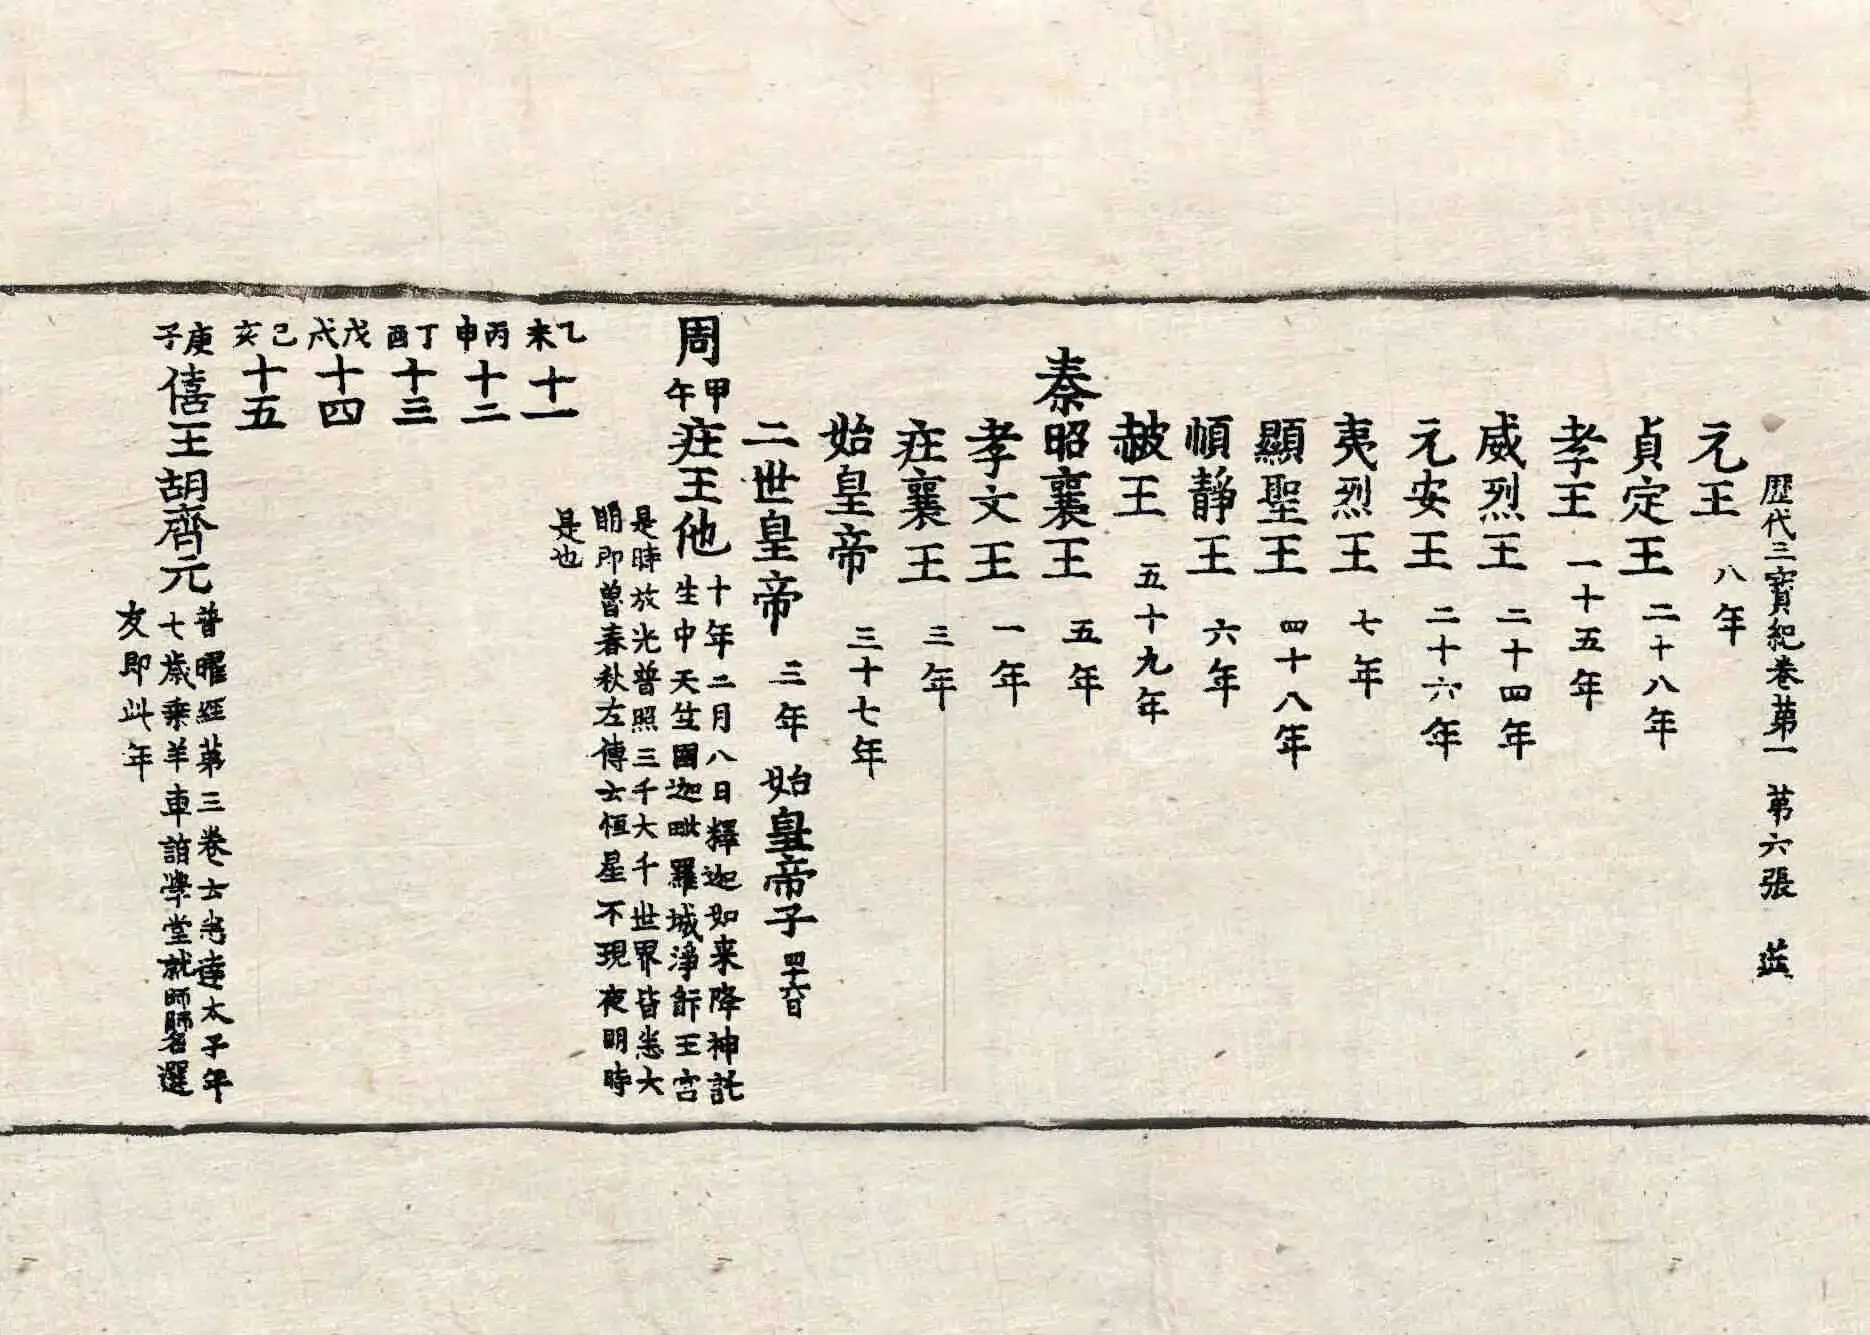 歷代三寳紀卷苐一 苐六張
元王 八年
貞定王 二十八年
孝王 一十五年
威烈王 二十四年
元安王 二十六年
夷烈王 七年
顯聖王 四十八年
愼靜王 六年
赧王 五十九年
秦昭襄王 五年
孝文王 一年
庄襄王 三年
始皇帝 三十七年
二世皇帝 三年 始皇帝子 四十六日
周 甲午 庄王他 十年二月八日釋迦如来降神託
生中天竺國迦毗羅城淨飰王宫
是時放光普照三千大千世界皆悉大
明即魯春秋左傳云恒星不現夜明時
是也
乙未 十一
丙申 十二
丁酉 十三
戊戌 十四
己亥 十五
庚子 僖王胡齊元 普曜經苐三卷云悉達太子年
七歲乗羊車詣學堂就師師名選
友即此年